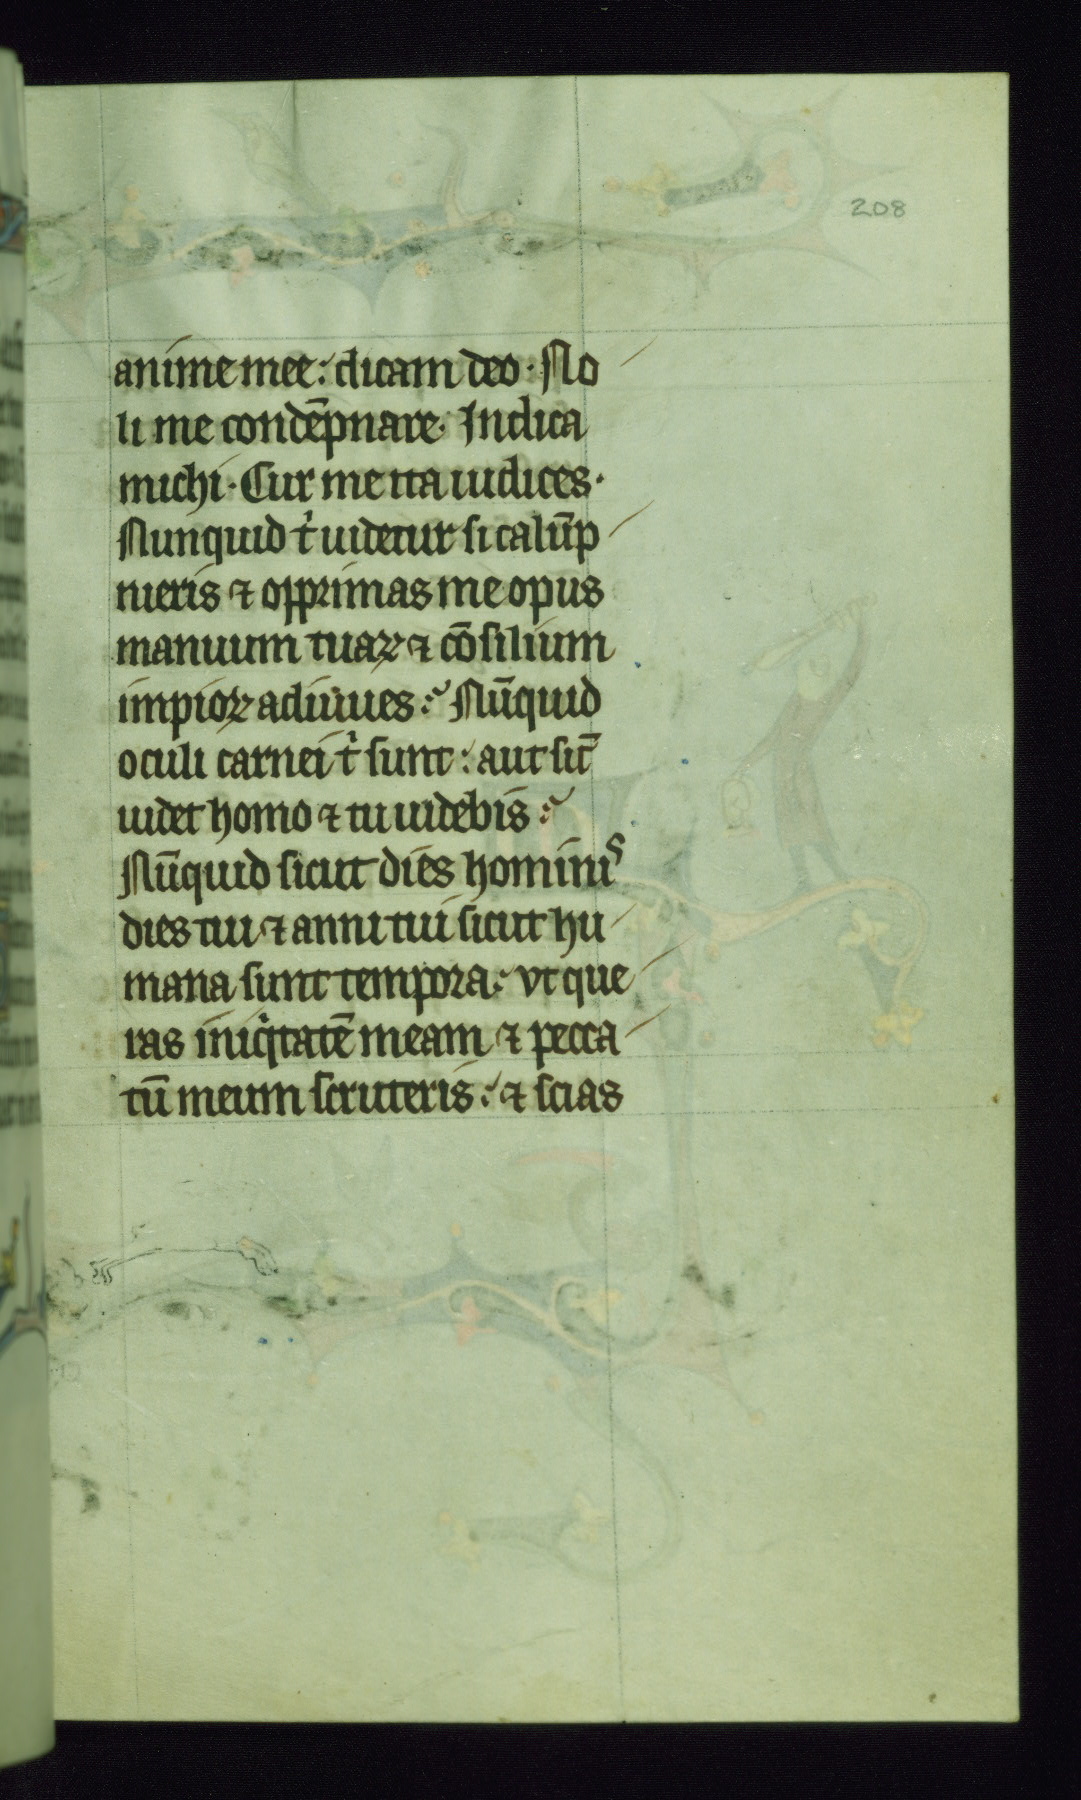 208
anime mee: dicam deo. No
li me condēpnare. Indica
michi. Cur me ita iudices.
Nunquid t̓ uidetur si calūp
nieris ⁊ opprimas me opus
manuum tuaꝝ ⁊ cōsilium
impioꝝ adiuues: Nūquid
oculi carnei t̓ sunt: aut sic̄
uidet homo ⁊ tu uidebis:
Nūquid sicut dies hominis
dies tui ⁊ anni tui sicut hu
mana sunt tempora: vt que
ras iniq̓tatē meam ⁊ pecca
tū meum scruteris: ⁊ scias